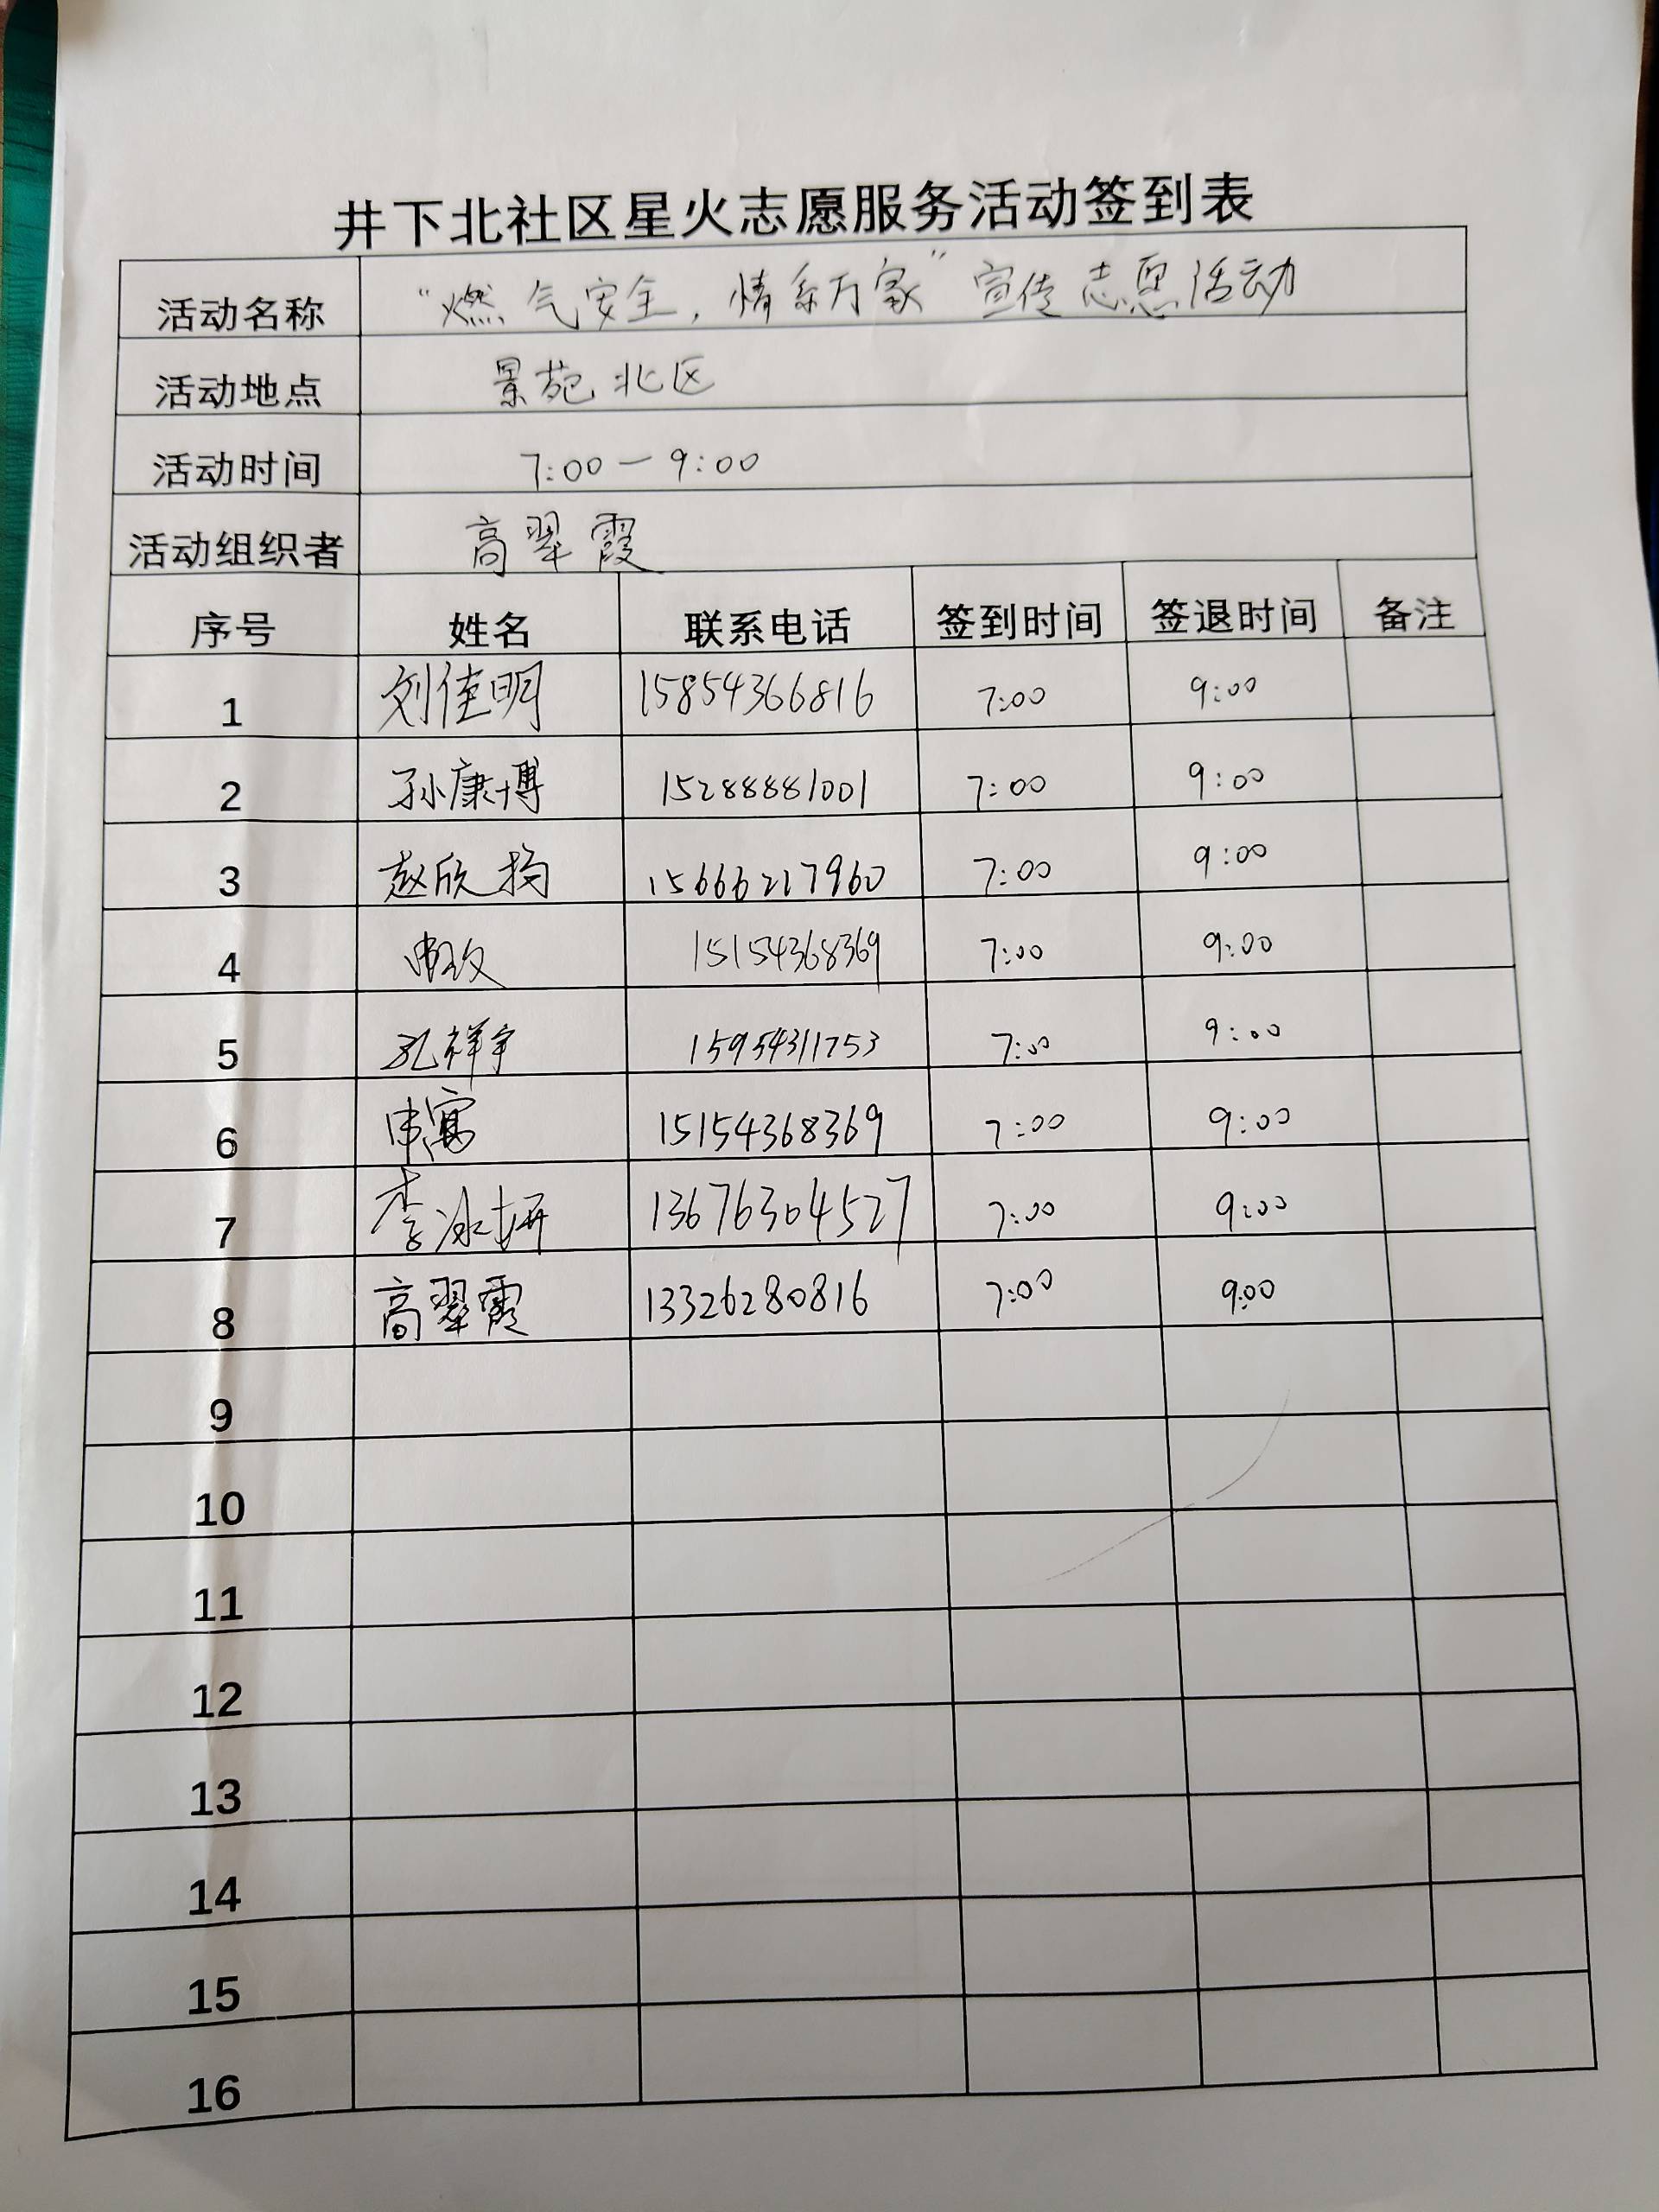 井下北社区星火志愿服务活动签到表
活动名称 “燃气安全，情系万家”宣传志愿活动
活动地点 景苑北区
活动时间 7:00－9:00
活动组织者 高翠霞
序号 姓名 联系电话 签到时间 签退时间 备注
1 刘佳明 15854366816 7:00 9:00
2 孙康博 15288881001 7:00 9:00
3 赵欣扬 15666217960 7:00 9:00
4 15154368369 7:00 9:00
5 孔祥宇 15954311753 7:00 9:00
6 15154368369 7:00 9:00
7 李冰妍 13676304527 7:00 9:00
8 高翠霞 13326280816 7:00 9:00
9
10
11
12
13
14
15
16